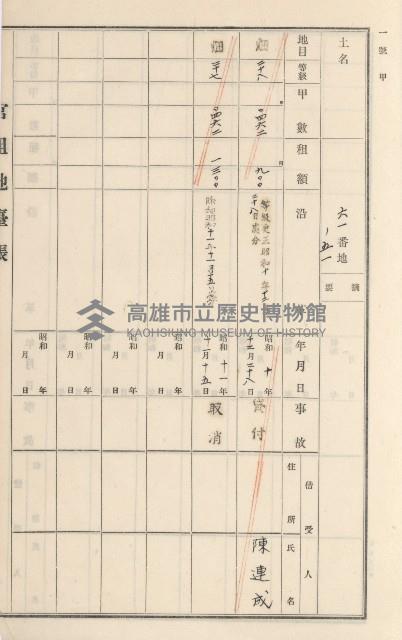 一號甲
土名
六一番地
ノ五一
摘要
地目
等級
甲數
租額
沿革
年月日
事故
借受人
住所
氏名
畑
三十八
〇四六二
九〇〇
等級更正昭和十年十二月
二十八日處分
昭和十年
十二月二十八日
貸付
陳連成
畑
三十七
〇四六二
一三〇〇
除租昭和十一年十一月十五日處分
昭和十一年
十一月十五日
取消
昭和 年
月 日
昭和 年
月 日
昭和 年
月 日
昭和 年
月 日
官租地臺帳
高雄市立歷史博物館
KAOHSIUNG MUSEUM OF HISTORY